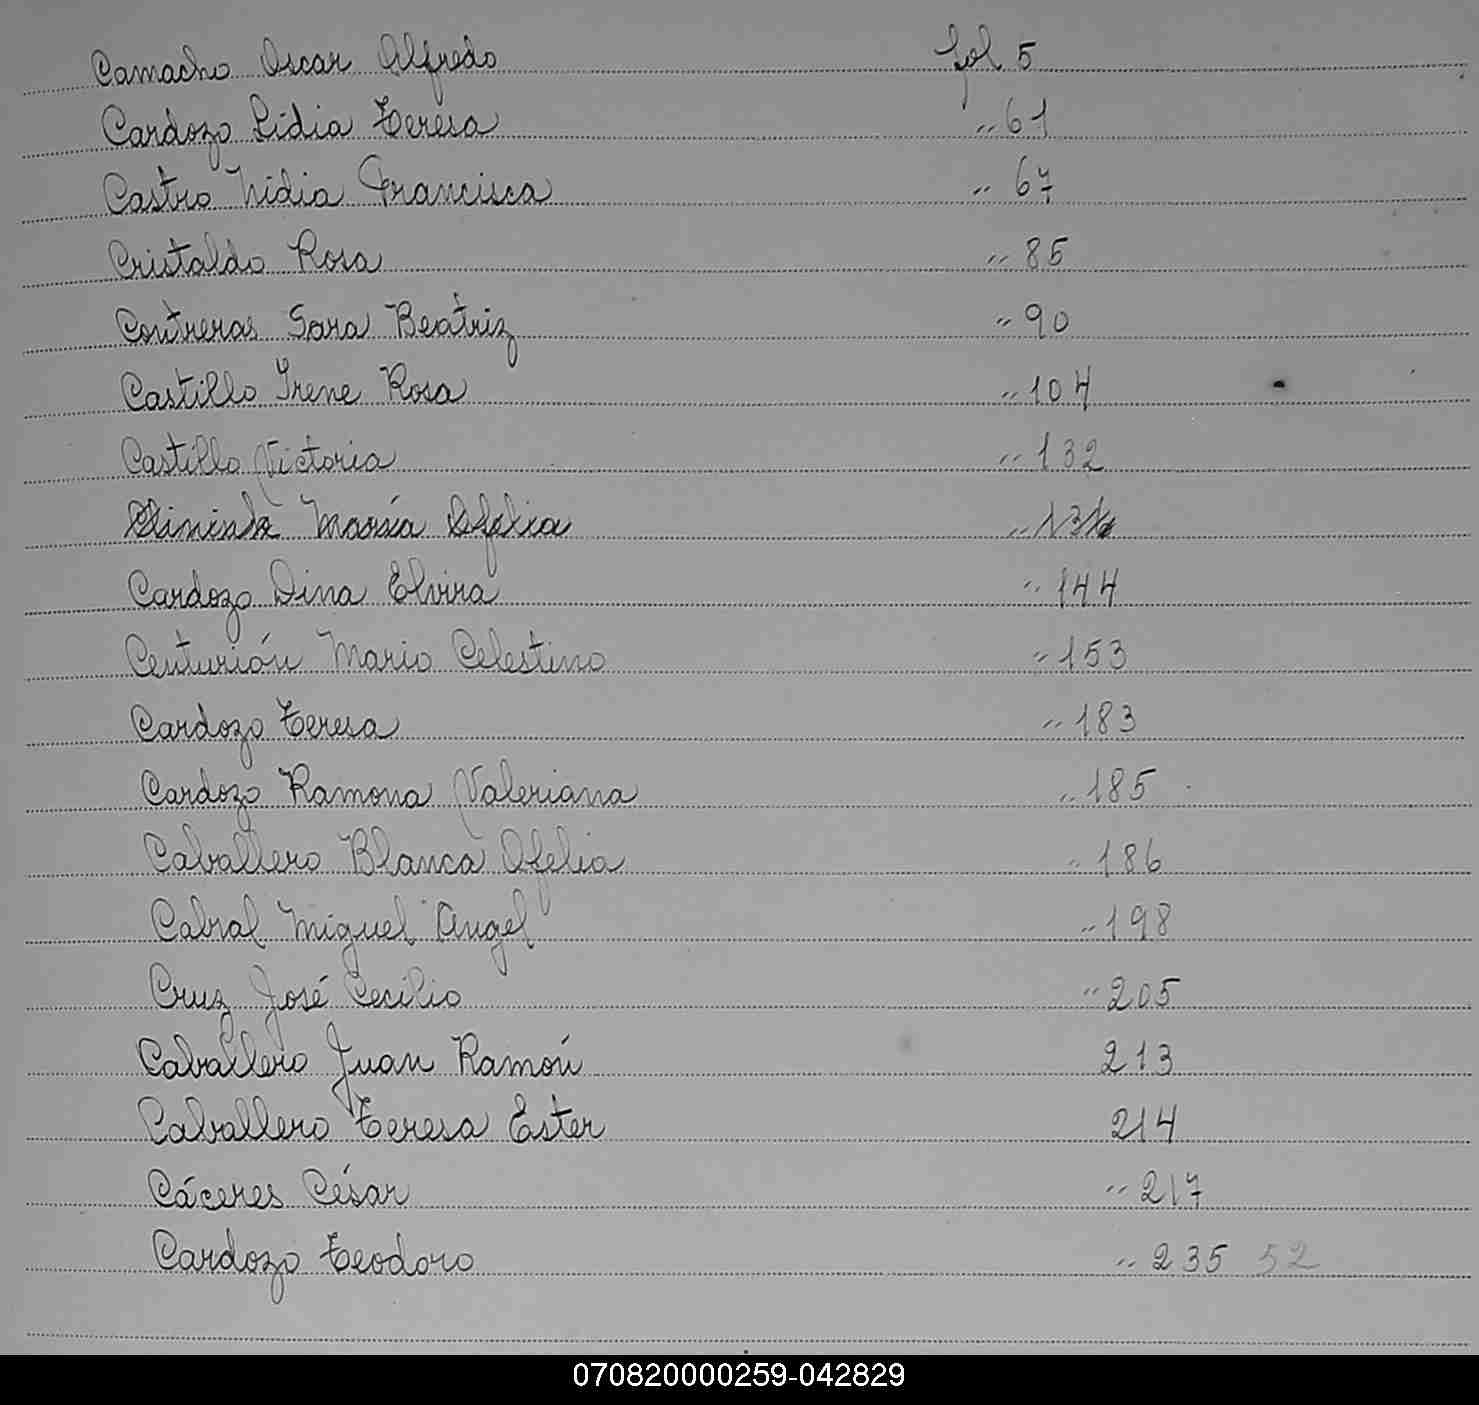 Camacho Oscar Alfredo fol 5
Cardozo Lidia Teresa ,, 61
Castro Nidia Francisca ,, 67
Cristaldo Rosa ,, 85
Contreras Sara Beatriz ,, 90
Castillo Irene Rosa ,, 104
Castillo Victoria ,, 132
María Ofelia ,,
Cardozo Dina Elvira ,, 144
Centurión Mario Celestino ,, 153
Cardozo Teresa ,, 183
Cardozo Ramona Valeriana ,, 185
Caballero Blanca Ofelia ,, 186
Cabral Miguel Angel ,, 198
Cruz José Cecilio ,, 205
Caballero Juan Ramón 213
Caballero Teresa Ester 214
Cáceres César ,, 217
Cardozo Teodoro ,, 235 52
070820000259-042829